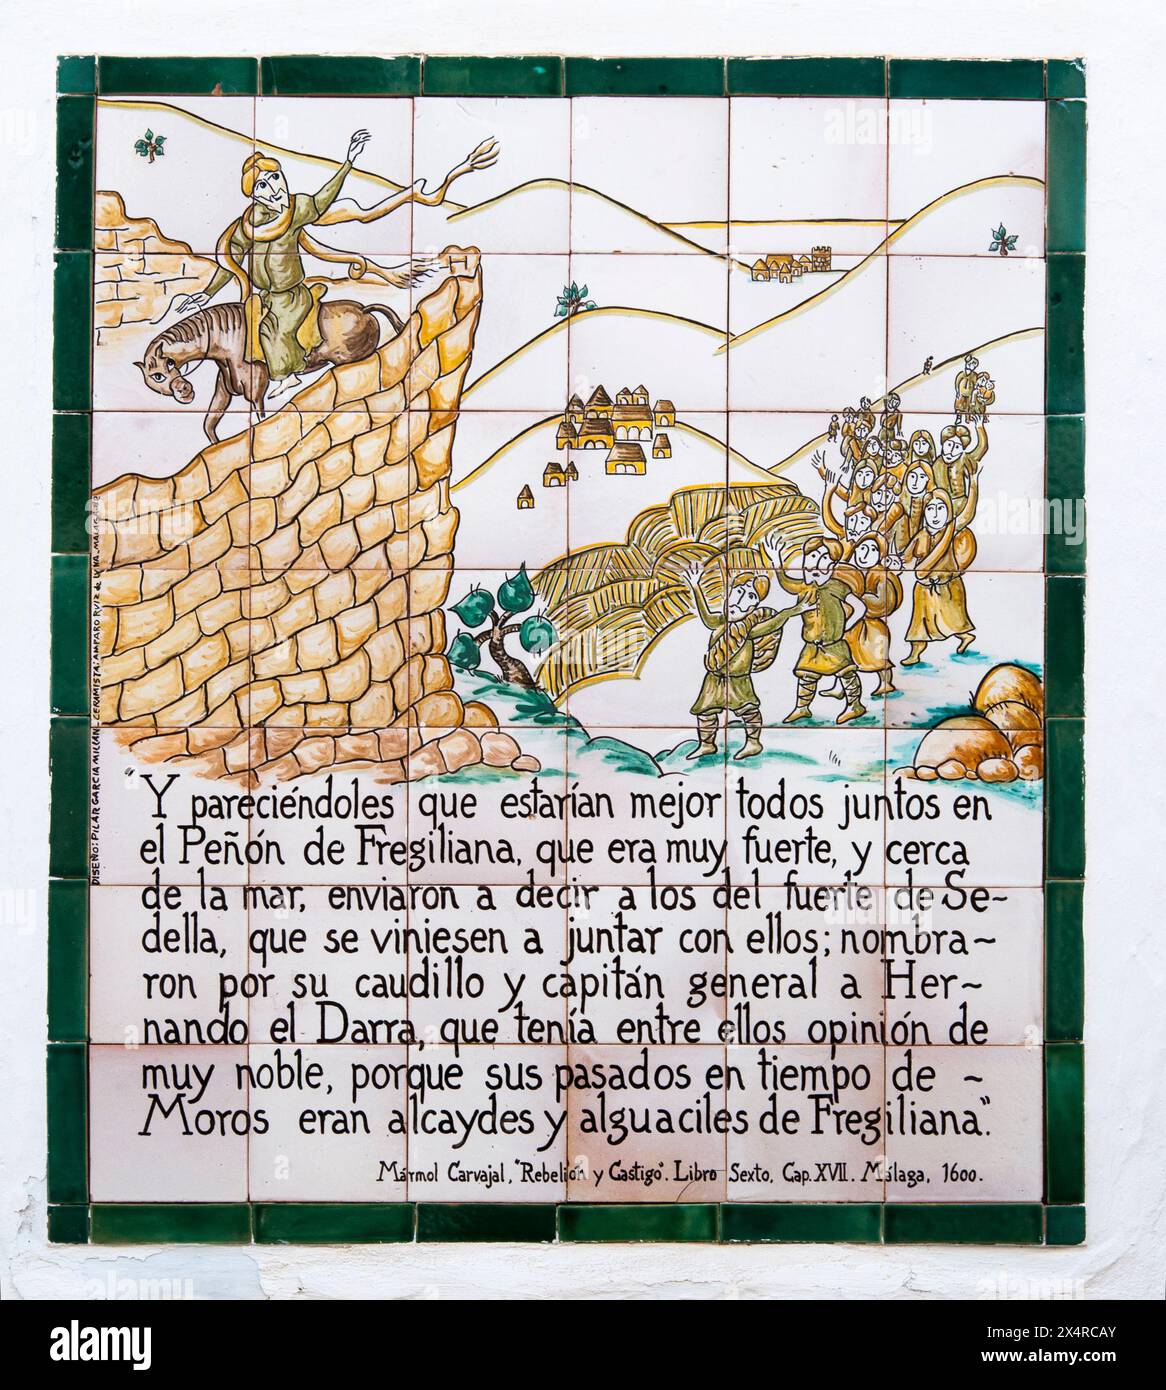 H
DISEÑO: PILAR GARCIA MILLAN. CERAMISTA: AMPARO RUIZ de LUNA.
"Y pareciéndoles que estarían mejor todos juntos en
el Peñón de Fregiliana, que era muy fuerte, y cerca
de la mar, enviaron a decir a los del fuerte de Se-
della, que se viniesen a juntar con ellos; nombra-
ron por su caudillo y capitán general a Her-
nando el Darra, que tenía entre ellos opinión de
muy noble, porque sus pasados en tiempo de -
Moros eran alcaydes y alguaciles de Fregiliana."
Mármol Carvajal, "Rebelión y Castigo". Libro Sexto, Cap. XVII. Málaga, 1600.
alamy
Image ID: 2X4RCAY
www.alamy.com